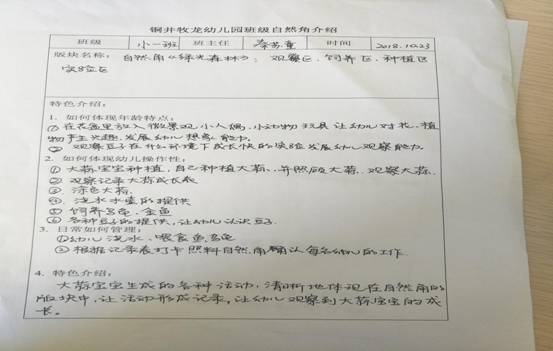 铜井牧龙幼儿园班级自然角介绍
班级 小一班 班主任 秦苏童 时间 2018.10.23
版块名称: 自然角《绿光森林》: 观察区、饲养区、种植区
实验区
特色介绍:
1. 如何体现年龄特点:
① 在花盆里放入微景观小人偶、小动物玩具让幼儿对花、植
物产生兴趣,发展幼儿想象能力
② 观察豆子在什么环境下成长快的实验发展幼儿观察能力
2. 如何体现幼儿操作性:
① 大蒜宝宝种植,自己种植大蒜、并照顾大蒜、观察大蒜.
② 观察记录大蒜成长表
③ 涂色大蒜
④ 浇水水壶的提供
⑤ 饲养乌龟、金鱼
⑥ 各种豆子的提供,让幼儿认识豆子.
3. 日常如何管理:
①幼儿浇水、喂食鱼乌龟
②根据记录表打卡照料自然角确认每名幼儿的工作
4. 特色介绍:
大蒜宝宝生成的各种活动,清晰地体现在自然角的
版块中,让活动形成记录,让幼儿观察到大蒜宝宝的成
长。